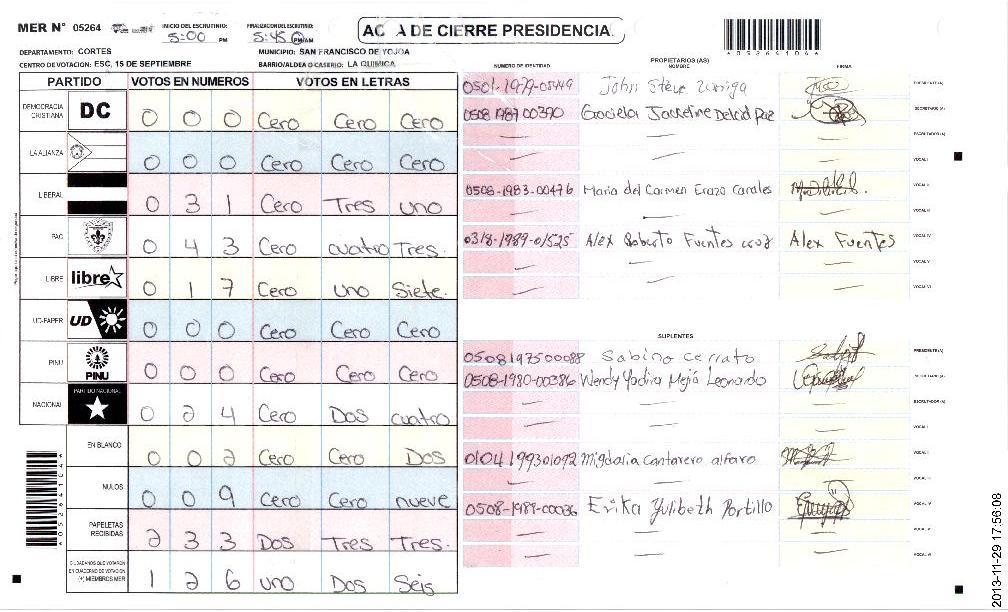 MER N° 05264
INICIO DEL ESCRUTINIO: 5:00 PM
FINALIZACION DEL ESCRUTINIO: 5:45 PM/AM
ACTA DE CIERRE PRESIDENCIAL
*05264104*
DEPARTAMENTO: CORTES
MUNICIPIO: SAN FRANCISCO DE YOJOA
CENTRO DE VOTACION: ESC, 15 DE SEPTIEMBRE
BARRIO/ALDEA O CASERIO: LA QUIMICA
PARTIDO VOTOS EN NUMEROS VOTOS EN LETRAS
DEMOCRACIA CRISTIANA DC 0 0 0 Cero Cero Cero
LA ALIANZA 0 0 0 Cero Cero Cero
LIBERAL 0 3 1 Cero Tres uno
PAC 0 4 3 Cero cuatro Tres.
LIBRE libre 0 1 7 Cero uno Siete.
UD-FAPER UD 0 0 0 Cero Cero Cero
PINU PINU 0 0 0 Cero Cero Cero
NACIONAL PARTIDO NACIONAL 0 2 4 Cero Dos cuatro
EN BLANCO 0 0 2 Cero Cero Dos
NULOS 0 0 9 Cero Cero nueve
PAPELETAS RECIBIDAS 2 3 3 Dos Tres Tres.
CIUDADANOS QUE VOTARON EN CUADERNO DE VOTACION (+) MIEMBROS MER 1 2 6 uno Dos Seis
PROPIETARIOS (AS)
NUMERO DE IDENTIDAD NOMBRE FIRMA
0501-1979-05449 John Steve Zuniga PRESIDENTE(A)
0508 1987 00390 Graciela Jackeline Delcid Paz SECRETARIO(A)
ESCRUTADOR (A)
VOCAL I
0508-1983-00476 Maria del Carmen Erazo Canales VOCAL II
VOCAL III
0318-1989-01525 Alex Roberto Fuentes cruz Alex Fuentes VOCAL IV
VOCAL V
VOCAL VI
SUPLENTES
0508197500088 Sabino Cerrato PRESIDENTE(A)
0508-1980-00386 Wendy Yadira Mejia Leonardo SECRETARIO(A)
ESCRUTADOR (A)
VOCAL I
0104199301092 Migdalia Cantarero alfaro
0508-1989-00036 Erika Yulibeth Portillo VOCAL IV
VOCAL V
VOCAL VI
2013-11-29 17:56:08